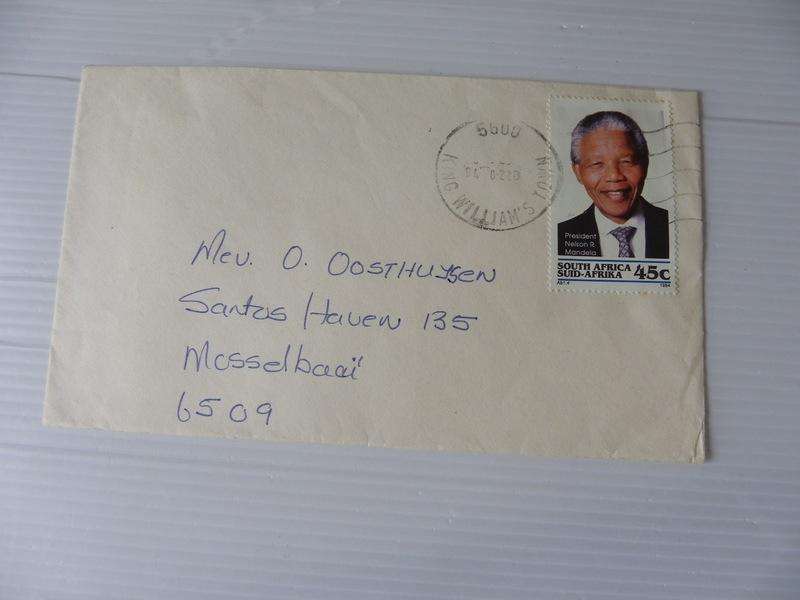 5600
KING WILLIAM'S TOWN
President
Nelson R.
Mandela
SOUTH AFRICA
SUID-AFRIKA 45c
1994
Mev. O. OOSTHUYSEN
Santos Haven 135
Mosselbaai
6509